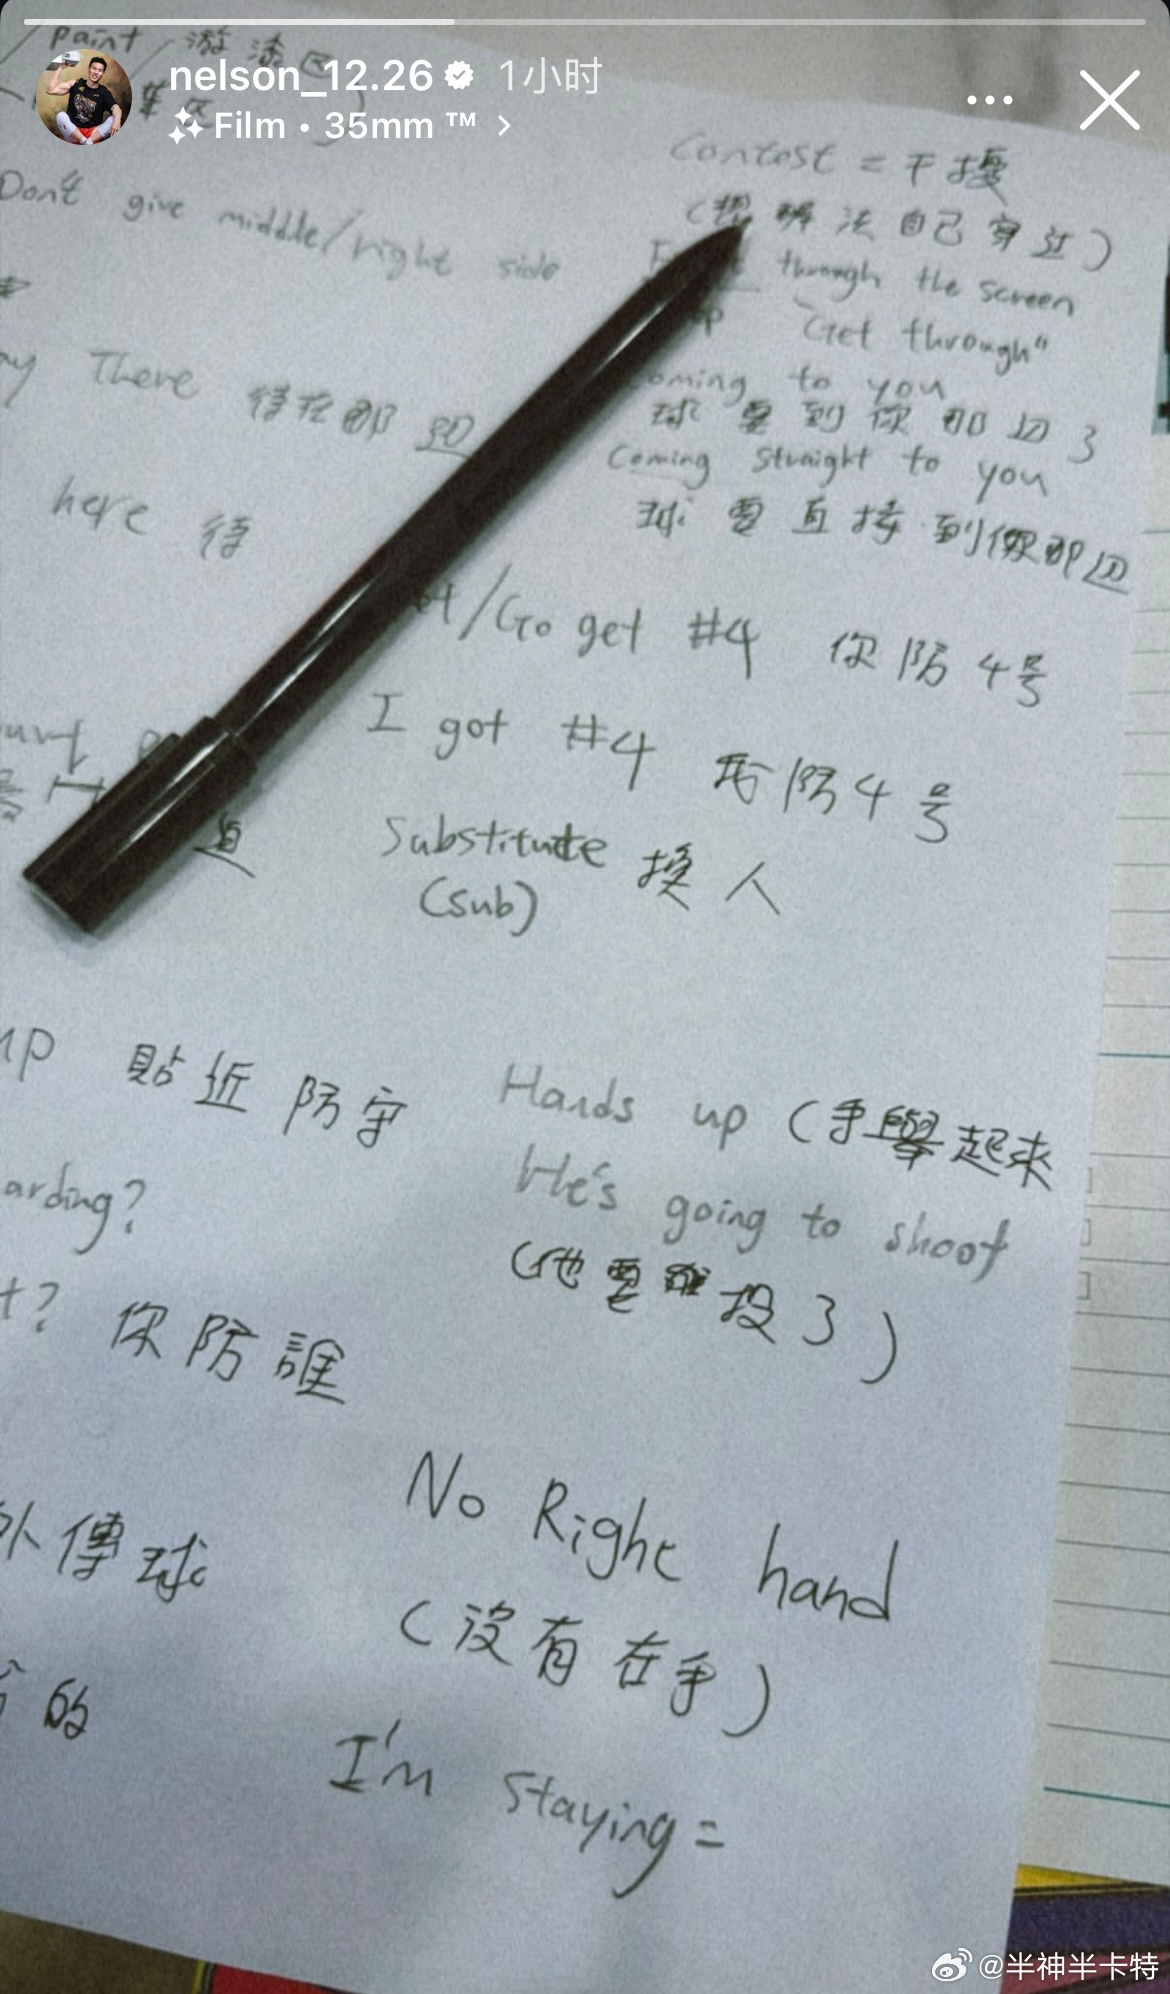 nelson_12.26 1小时
Film • 35mm ™
paint/游漆区
Contest = 干擾
Don't give middle/right side
(想辦法自己穿过)
through the screen
"Get through"
There 待在那边
coming to you
球要到你那边了
Coming straight to you
球要直接到你那边
here 待
/Go get #4 你防4号
I got #4 我防4号
Substitute 换人
(Sub)
up 貼近防守
Hands up (手舉起來
arding?
He's going to shoot
(他要投了)
t? 你防誰
No Right hand
外傳球
(没有在手)
的
I'm staying =
@半神半卡特